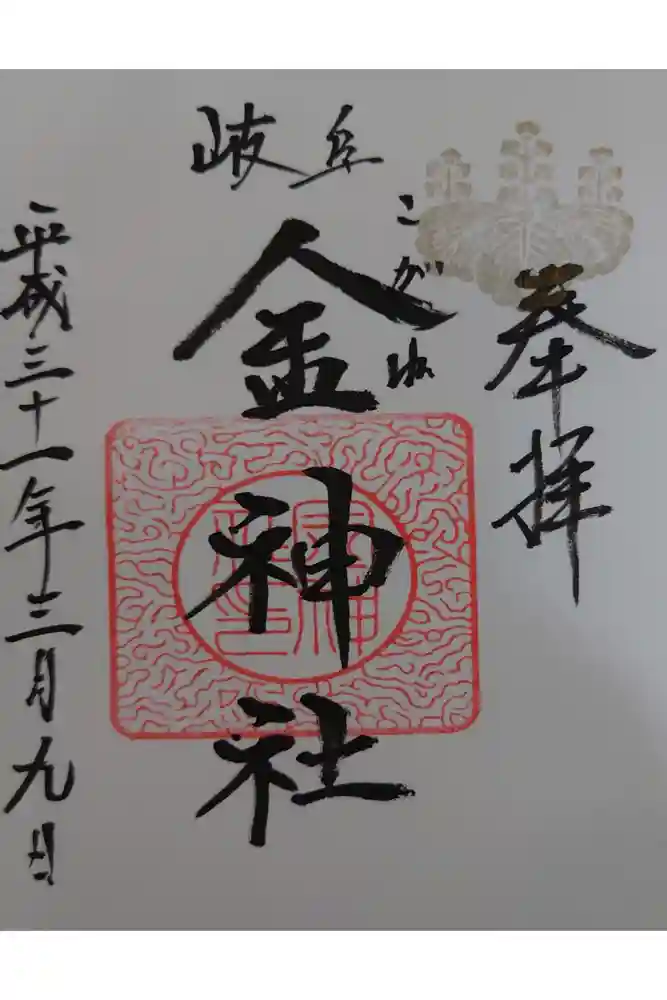 奉拝
岐阜
こがね
金神社
平成三十一年三月九日